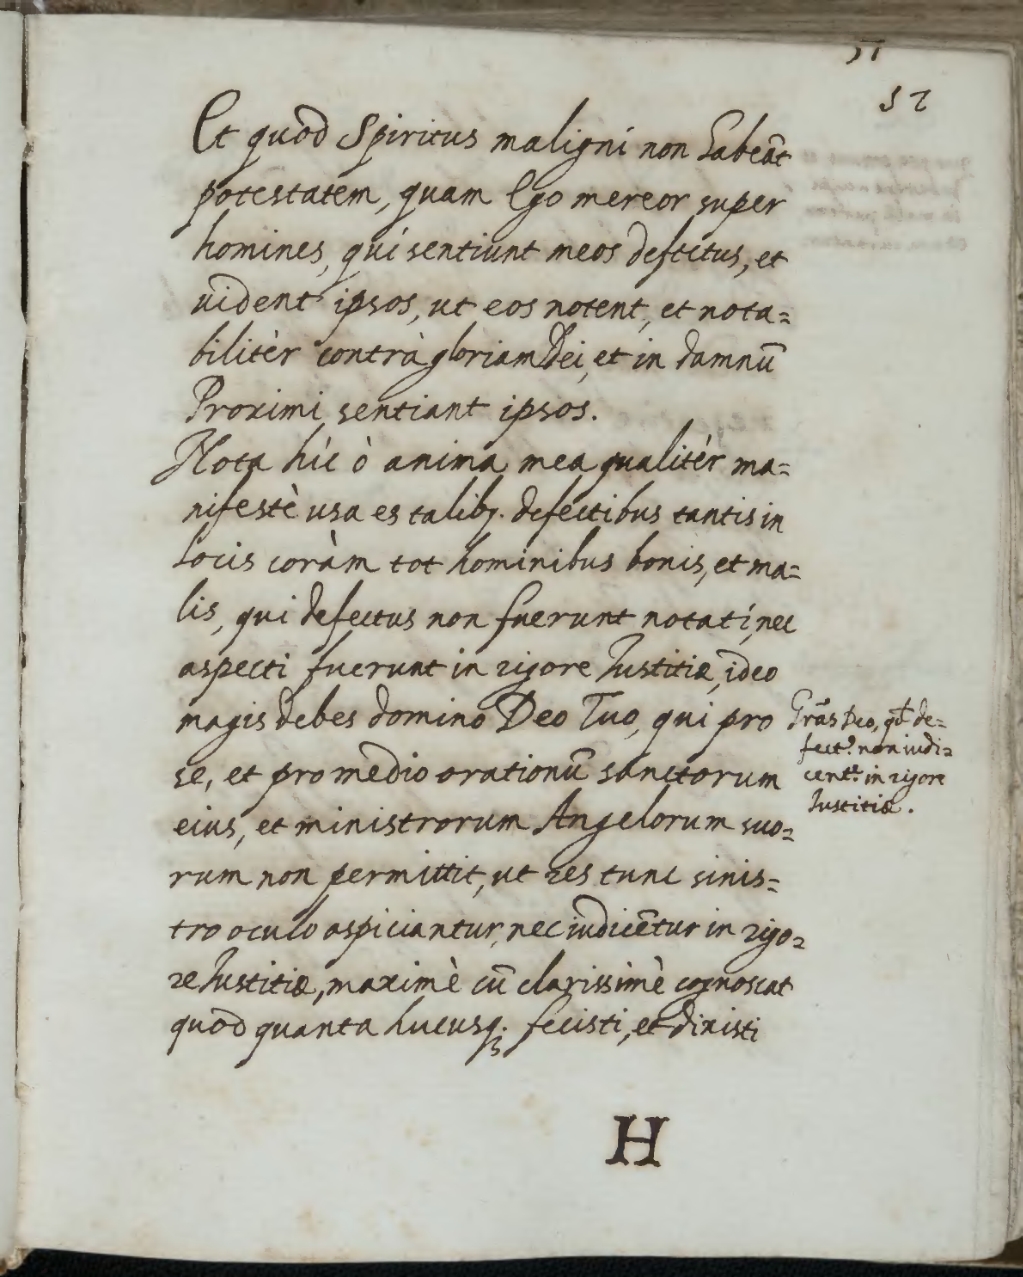 51
52
Et quod Spiritus maligni non habeāt
potestatem, quam Ego mereor super
homines, qui sentiunt meos defectus, et
uident ipsos, ut eos notent, et nota=
bilitèr contrà gloriam Dei, et in damnū
Proximi sentiant ipsos.
Nota hìc ò anima mea qualitér ma=
nifestè usa es talibq. defectibus tantis in
locis coràm tot hominibus bonis, et ma=
lis, qui defectus non fuerunt notati, nec
aspecti fuerunt in rigore Iustitiæ, ideo
magis debes domino Deo Tuo, qui pro
se, et pro medio orationū sanctorum
eius, et ministrorum Angelorum suo=
rum non permittit, ut res tunc sinis=
tro oculo aspiciantur, nec iudicētur in rigo=
re Iustitiæ, maximè cū clarissimè cognoscat
quod quanta hucusq; fecisti, et dixisti
Grās Deo, qd de=
fect.s non iudi=
cent.r in rigore
Iustitiæ.
H